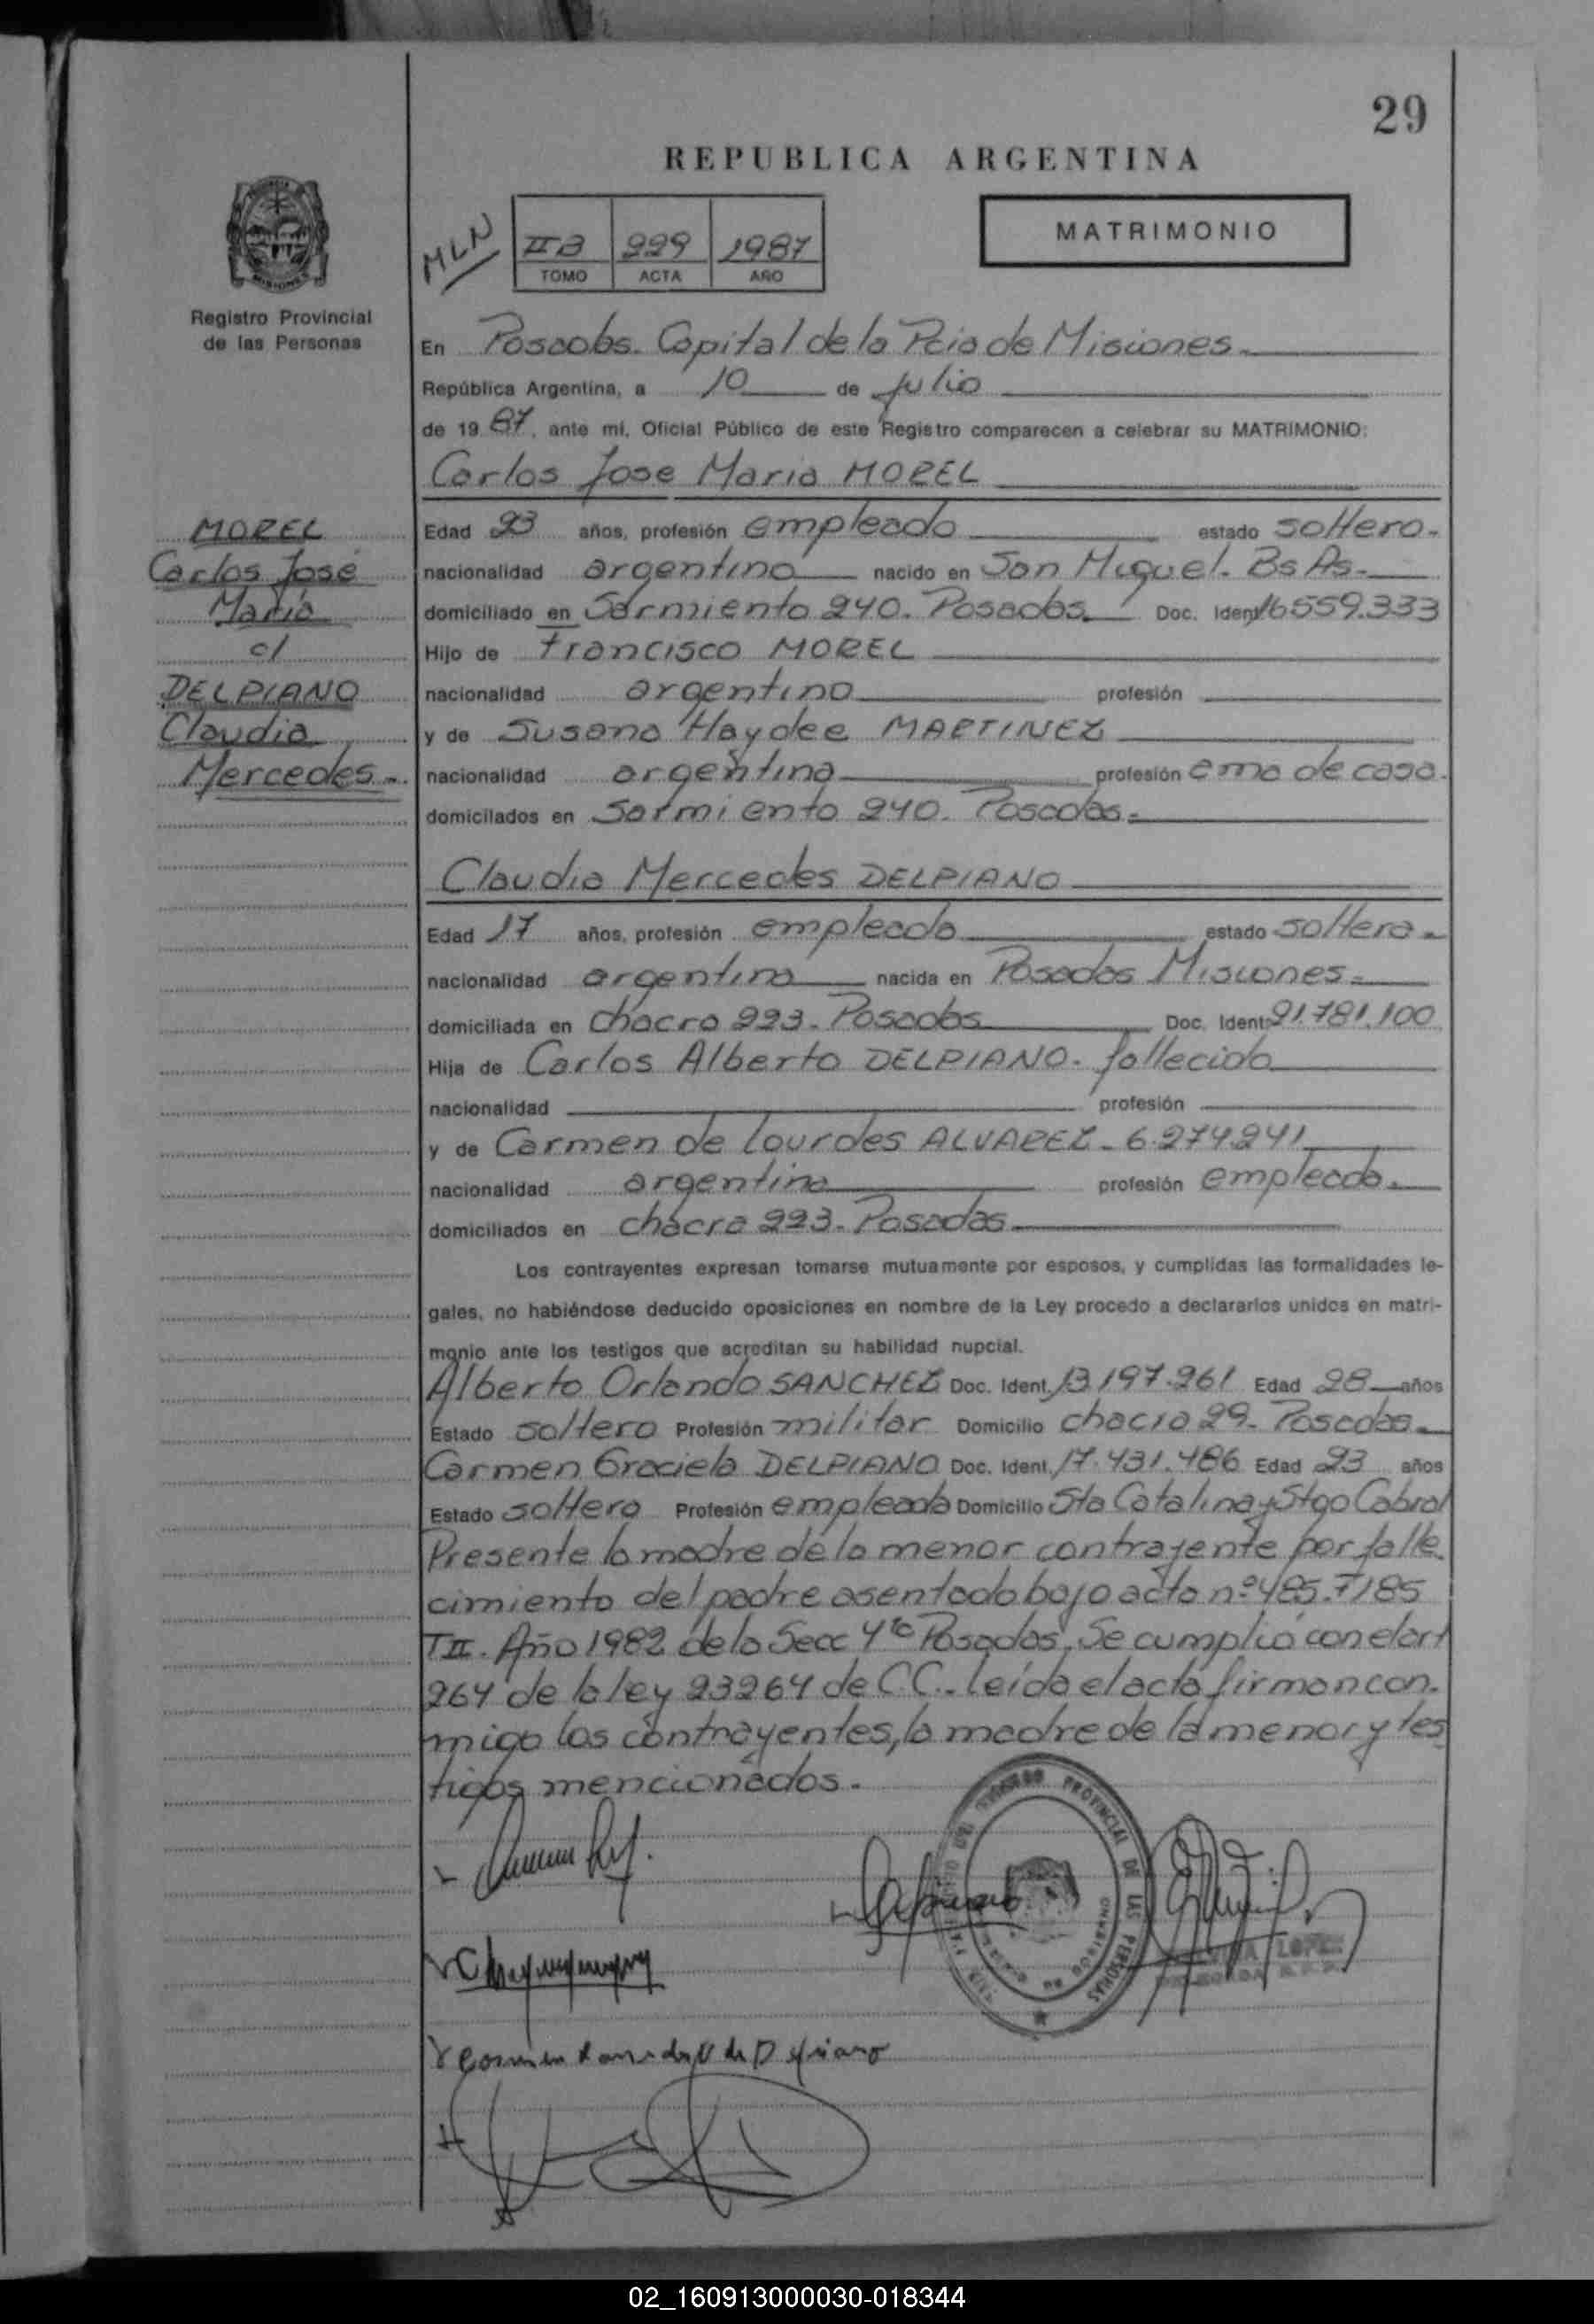 29
REPUBLICA ARGENTINA
MATRIMONIO
MLN
II B 229 1987
TOMO ACTA AÑO
Registro Provincial
de las Personas
En Posadas. Capital de la Pcia de Misiones
República Argentina, a 10 de Julio
de 19 87, ante mí, Oficial Público de este Registro comparecen a celebrar su MATRIMONIO:
Carlos Jose Maria MOREL
MOREL
Carlos José
María
c/
DELPIANO
Claudia
Mercedes
Edad 23 años, profesión empleado estado soltero.
nacionalidad argentina nacido en San Miguel. Bs As.
domiciliado en Sarmiento 240. Posadas Doc. Ident 16559.333
Hijo de Francisco MOREL
nacionalidad argentino profesión
y de Susana Haydee MARTINEZ
nacionalidad argentina profesión ama de casa.
domicilados en Sarmiento 240. Posadas.
Claudia Mercedes DELPIANO
Edad 17 años, profesión empleada estado soltera.
nacionalidad argentina nacida en Posadas Misiones.
domiciliada en chacra 223. Posadas Doc. Ident. 21.781.100
Hija de Carlos Alberto DELPIANO. fallecido
nacionalidad profesión
y de Carmen de Lourdes ALVAREZ - 6.274.241
nacionalidad argentina profesión empleada.
domiciliados en chacra 223. Posadas
Los contrayentes expresan tomarse mutuamente por esposos, y cumplidas las formalidades le-
gales, no habiéndose deducido oposiciones en nombre de la Ley procedo a declararlos unidos en matri-
monio ante los testigos que acreditan su habilidad nupcial.
Alberto Orlando SANCHEZ Doc. Ident. 13.197.261 Edad 28 años
Estado soltero Profesión militar Domicilio chacra 29. Posadas
Carmen Graciela DELPIANO Doc. Ident. 17.431.486 Edad 23 años
Estado soltera Profesión empleada Domicilio Sta Catalina y Stgo Cabral
Presente la madre de la menor contrayente por falle
cimiento del padre asentado bajo acta nº 485. F 185
T II. Año 1982 de la Secc 4ta Posadas. Se cumplió con el art
264 de la ley 23264 de C.C. Leída el acta firman con.
migo los contrayentes, la madre de la menor y tes
tigos mencionados.
PROVINCIAL DE LAS PERSONAS
LOPEZ
02_160913000030-018344